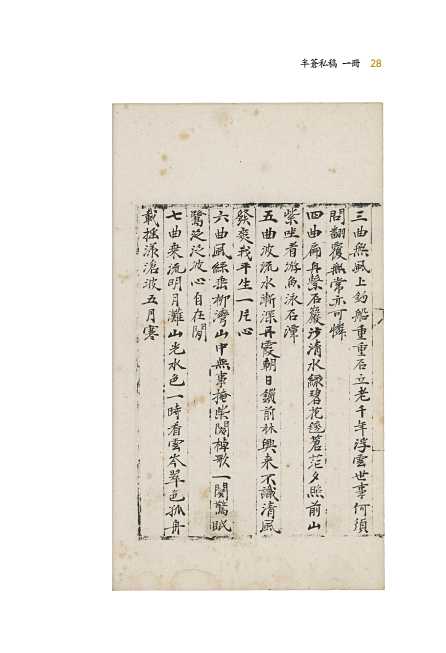 半蒼私稿 一冊 28
三曲無風上釣船重重石立老千年浮雲世事何須
問翻覆無常亦可憐
四曲扁舟繫石巖沙清水綠碧花毿蒼茫夕照前山
紫坐看游魚泳石潭
五曲波流水漸深丹霞朝日鎖前林興來不識清風
發爽我平生一片心
六曲風絲垂柳灣山中無事掩柴関棹歌一闋驚眠
鷺泛泛波心自在閒
七曲乘流明月灘山光水色一時看雲岑翠色孤舟
載搖漾滄波五月寒